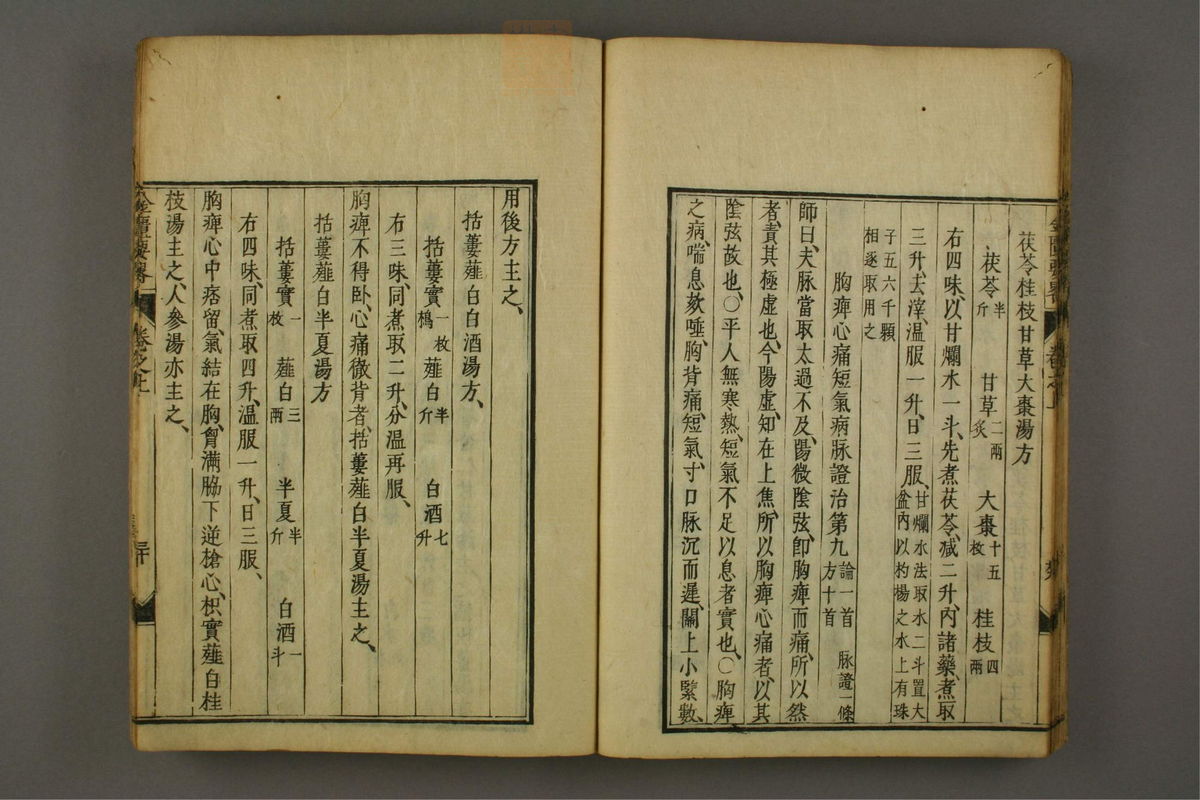 茯苓桂枝甘草大棗湯方
茯苓半斤 甘草二兩炙 大棗十五枚 桂枝四兩
右四味、以甘爛水一斗、先煮茯苓、减二升、內諸藥、煮取
三升、去滓、温服一升、日三服、甘爛水法取水二斗置大盆內以杓楊之水上有珠
子五六千顆相逐取用之
胸痺心痛短氣病脉證治第九 論一首 脉證一條 方十首
師曰、夫脉當取太過不及、陽微陰弦、卽胸痺而痛、所以然
者、責其極虛也、今陽虛、知在上焦、所以胸痺心痛者、以其
陰弦故也、○平人無寒熱、短氣不足以息者、實也、○胸痺
之病、喘息欬唾、胸背痛、短氣、寸口脉沉而遲、關上小緊數、
用後方主之、
括蔞薤白白酒湯方、
括蔞實一枚檮 薤白半斤 白酒七升
右三味、同煮取二升、分温再服、
胸痺不得卧、心痛徹背者、括蔞薤白半夏湯主之、
括蔞薤白半夏湯方
括蔞實一枚 薤白三兩 半夏半斤 白酒一斗
右四味、同煮取四升、温服一升、日三服、
胸痺心中痞留、氣結在胸、胷滿脇下逆槍心、枳實薤白桂
枝湯主之、人參湯亦主之、
金匱要畧 卷之上